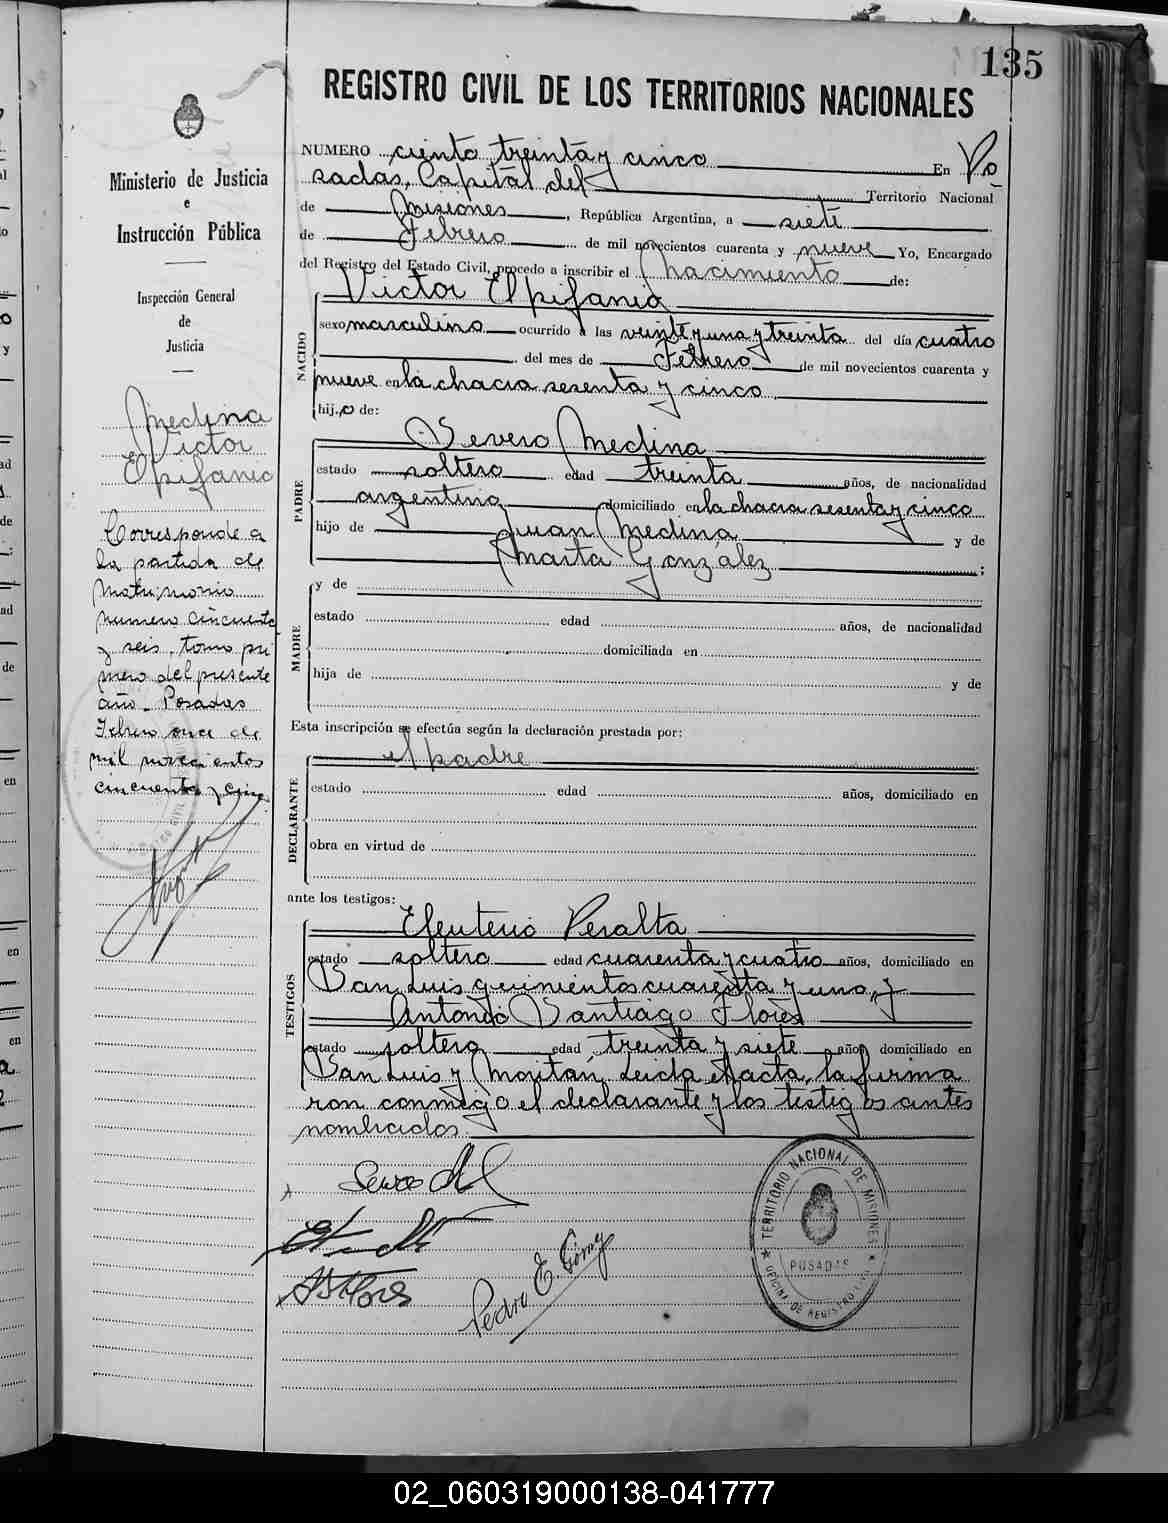 135
REGISTRO CIVIL DE LOS TERRITORIOS NACIONALES
Ministerio de Justicia
e
Instrucción Pública
Inspección General
de
Justicia
Medina
Victor
Epifanio
Corresponde a
la partida de
Matrimonio
numero cincuenta
y seis, tomo pri
mero del presente
año - Posadas
Febrero once de
mil novecientos
cincuenta y cinco
NUMERO ciento treinta y cinco En Po
sadas, Capital del Territorio Nacional
de Misiones, República Argentina, a siete
de Febrero de mil novecientos cuarenta y nueve Yo, Encargado
del Registro del Estado Civil, procedo a inscribir el nacimiento de:
NACIDO
Victor Elpifanio
sexo masculino ocurrido a las veinte y una y treinta del día cuatro
del mes de Febrero de mil novecientos cuarenta y
nueve en la chacra sesenta y cinco
hij.o de:
PADRE
Severo Medina
estado soltero edad treinta años, de nacionalidad
argentina domiciliado en la chacra sesenta y cinco
hijo de Juan Medina y de
Marta González ;
MADRE
y de
estado edad años, de nacionalidad
domiciliada en
hija de y de
Esta inscripción se efectúa según la declaración prestada por:
DECLARANTE
el padre
estado edad años, domiciliado en
obra en virtud de
ante los testigos:
TESTIGOS
Eleuterio Peralta
estado soltero edad cuarenta y cuatro años, domiciliado en
San Luis quinientos cuarenta y uno, y
Antonio Santiago Flores
estado soltero edad treinta y siete años domiciliado en
San Luis y Moritan, Leida el acta, la firma
ron conmigo el declarante y los testigos antes
nombrados.
Pedro E. Gómez
TERRITORIO NACIONAL DE MISIONES
POSADAS
OFICINA DE REGISTRO CIVIL
02_060319000138-041777